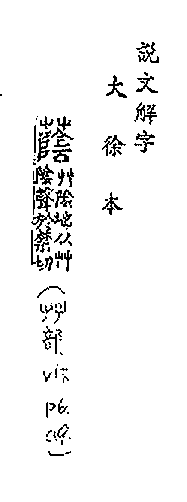 說文解字
大徐本
蔭 艸陰地从艸
陰聲於禁切
(艸部